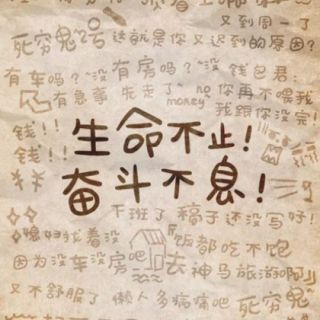 又到周一了
死穷鬼 这就是你又迟到的原因?
有车吗? 没 有房吗? 没 钱包君:
有急事 先走了 no money 你再不喂我
我跟你没完!
钱!!
钱!!
生命不止!
奋斗不息!
下班了 稿子还没写好!
媳妇找着没 饭都吃不饱
因为没车没房吧 去神马旅游啊
又不舒服了 懒人多病痛吧 死穷鬼